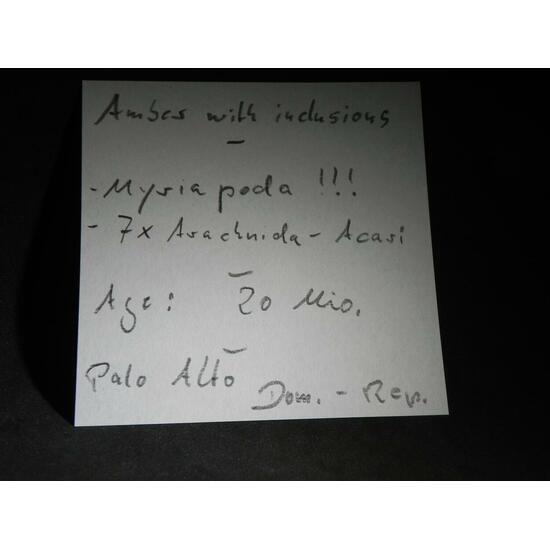 Amber with inclusions
-
- Myriapoda !!!
- 7x Arachnida - Acari
-
Age: 20 Mio.
-
Palo Alto Dom. - Rep.